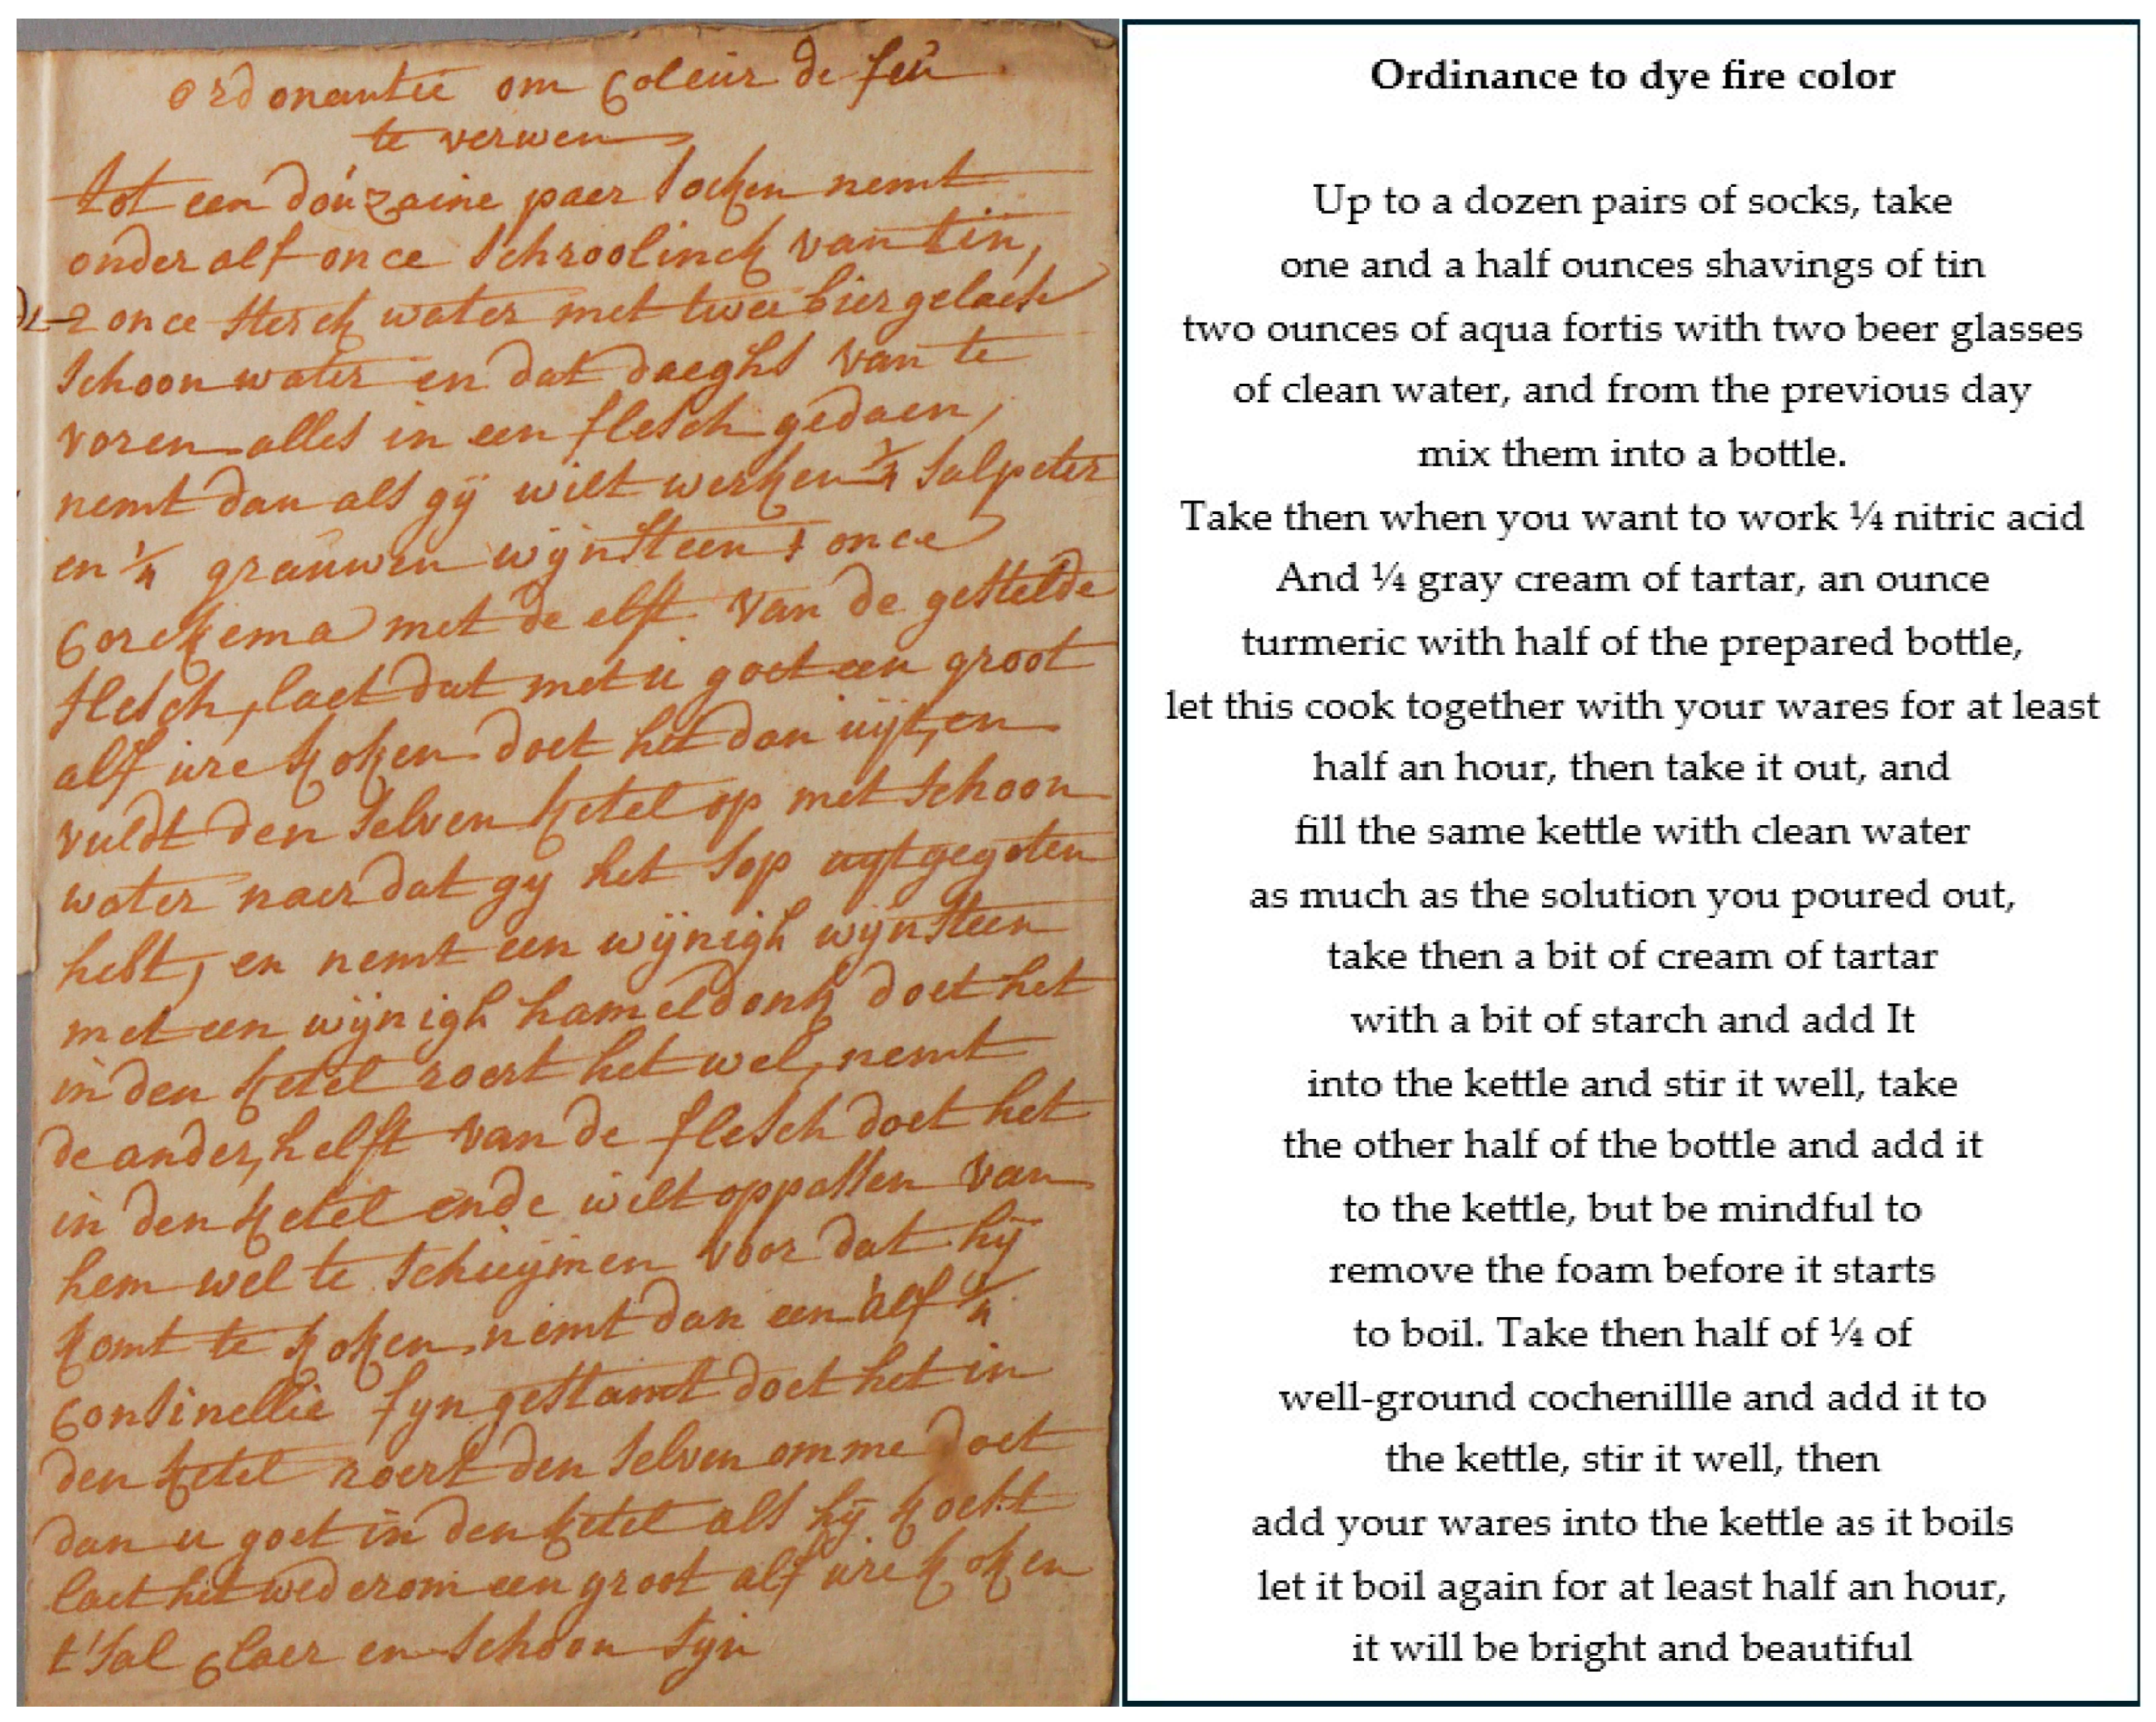 ordonantie om Coleur de feu
te verwen
tot een douzaine paer socken nemt
onder alf once schroolinck van tin,
2 once sterck water met twee bier gelaesen
schoon water en dat daeghs van te
voren alles in een flesch gedaen,
nemt dan als gij wilt werken ¼ salpeter
en ¼ grauwen wijnsteen 1 once
Corckema met de elft van de gestelde
flesch, laet dat met u goet een groot
alf ure koken doet het dan uijt, en
vuldt den selven ketel op met schoon
water naer dat gy het sop uytgegoten
hebt, en nemt een wijnigh wijnsteen
met een wijnigh hameldonk doet het
in den ketel roert het wel, nemt
de ander, helft van de flesch doet het
in den ketel ende wilt oppassen van
hem wel te schuijmen voor dat hij
komt te koken. nemt dan een alf ¼
Consinellie fyn gestamt doet het in
den ketel roert den selven omme doet
dan u goet in den ketel als hij kockt
laet het wederom een groot alf ure koken
t'sal claer en schoon syn
Ordinance to dye fire color
Up to a dozen pairs of socks, take
one and a half ounces shavings of tin
two ounces of aqua fortis with two beer glasses
of clean water, and from the previous day
mix them into a bottle.
Take then when you want to work ¼ nitric acid
And ¼ gray cream of tartar, an ounce
turmeric with half of the prepared bottle,
let this cook together with your wares for at least
half an hour, then take it out, and
fill the same kettle with clean water
as much as the solution you poured out,
take then a bit of cream of tartar
with a bit of starch and add It
into the kettle and stir it well, take
the other half of the bottle and add it
to the kettle, but be mindful to
remove the foam before it starts
to boil. Take then half of ¼ of
well-ground cochenillle and add it to
the kettle, stir it well, then
add your wares into the kettle as it boils
let it boil again for at least half an hour,
it will be bright and beautiful